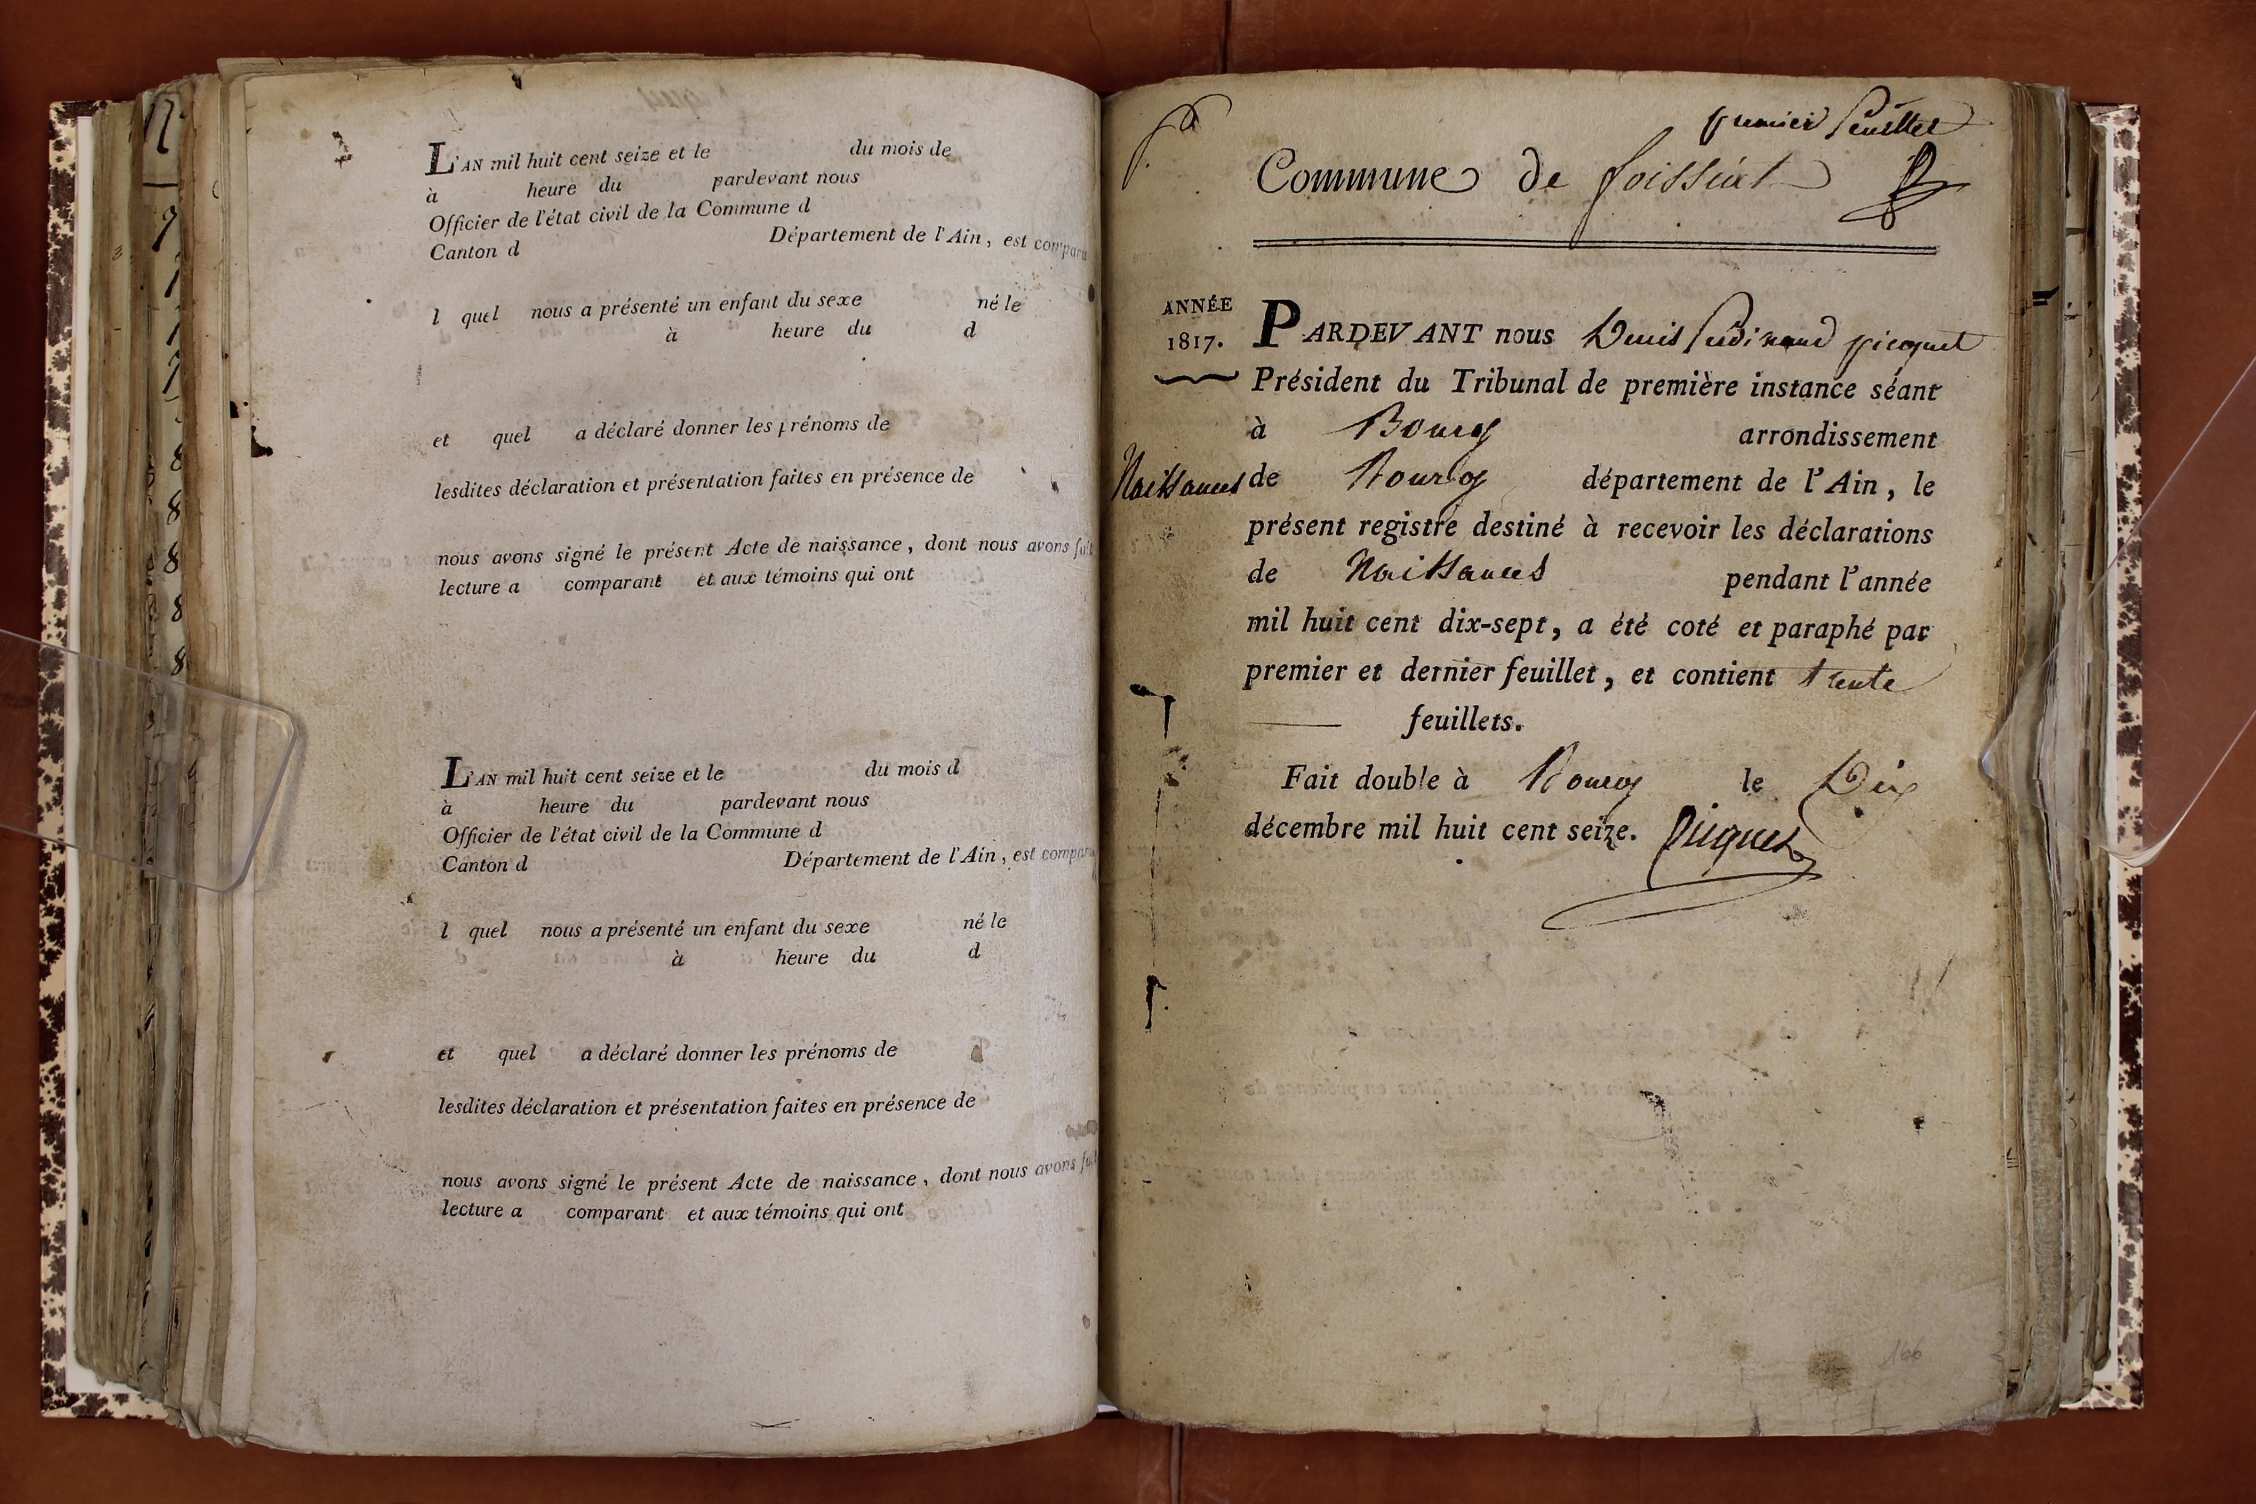 L'AN mil huit cent seize et le du mois de
à heure du pardevant nous
Officier de l'état civil de la Commune d
Canton d Département de l'Ain, est comparu
l quel nous a présenté un enfant du sexe né le
à heure du d
et quel a déclaré donner les prénoms de
lesdites déclaration et présentation faites en présence de
nous avons signé le présent Acte de naissance, dont nous avons fait
lecture a comparant et aux témoins qui ont
L'AN mil huit cent seize et le du mois d
à heure du pardevant nous
Officier de l'état civil de la Commune d
Canton d Département de l'Ain, est comparu
l quel nous a présenté un enfant du sexe né le
à heure du d
et quel a déclaré donner les prénoms de
lesdites déclaration et présentation faites en présence de
nous avons signé le présent Acte de naissance, dont nous avons fait
lecture a comparant et aux témoins qui ont
premier feuillet
Commune de foissiat
ANNÉE
1817.
Naissances
PARDEVANT nous Denis ferdinand picquet
Président du Tribunal de première instance séant
à Bourg arrondissement
de Bourg département de l'Ain, le
présent registre destiné à recevoir les déclarations
de Naissances pendant l'année
mil huit cent dix-sept, a été coté et paraphé par
premier et dernier feuillet, et contient trente
feuillets.
Fait double à Bourg le Dix
décembre mil huit cent seize. Picquet
166